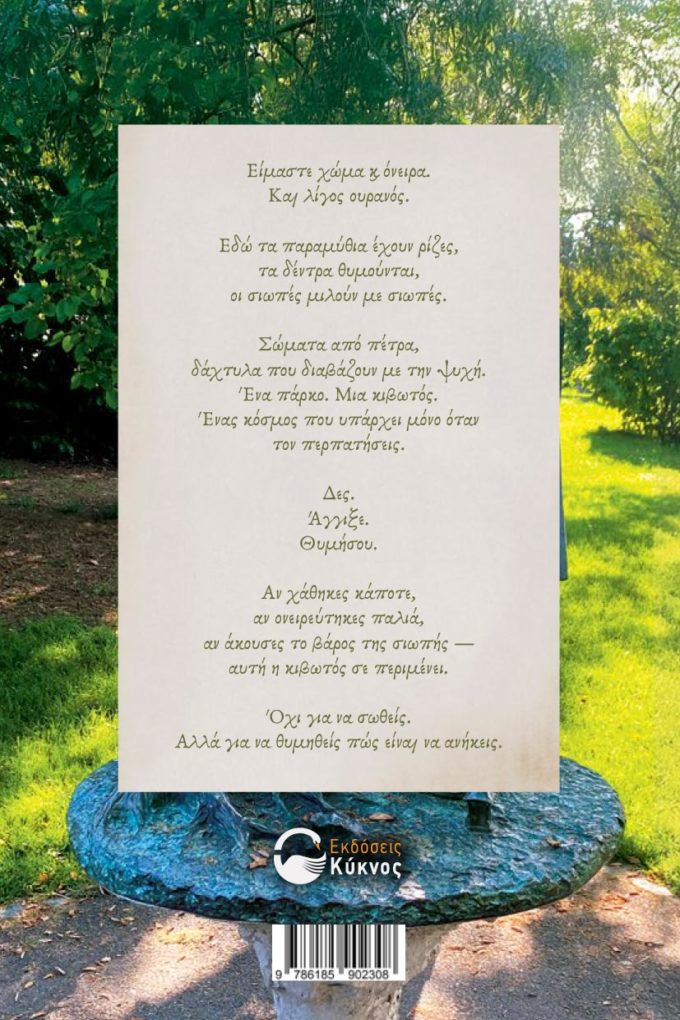 Είμαστε χώμα ϗ όνειρα.
Και λίγος ουρανός.
Εδώ τα παραμύθια έχουν ρίζες,
τα δέντρα θυμούνται,
οι σιωπές μιλούν με σιωπές.
Σώματα από πέτρα,
δάχτυλα που διαβάζουν με την ψυχή.
Ένα πάρκο. Μια κιβωτός.
Ένας κόσμος που υπάρχει μόνο όταν
τον περπατήσεις.
Δες.
Άγγιξε.
Θυμήσου.
Αν χάθηκες κάποτε,
αν ονειρεύτηκες παλιά,
αν άκουσες το βάρος της σιωπής —
αυτή η κιβωτός σε περιμένει.
Όχι για να σωθείς.
Αλλά για να θυμηθείς πώς είναι να ανήκεις.
Εκδόσεις
Κύκνος
9 786185 902308